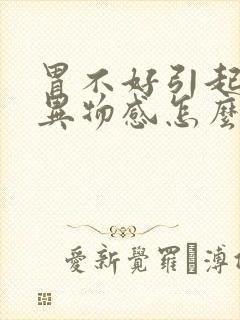 胃不好引起
異物感怎麼
愛新覺羅溥